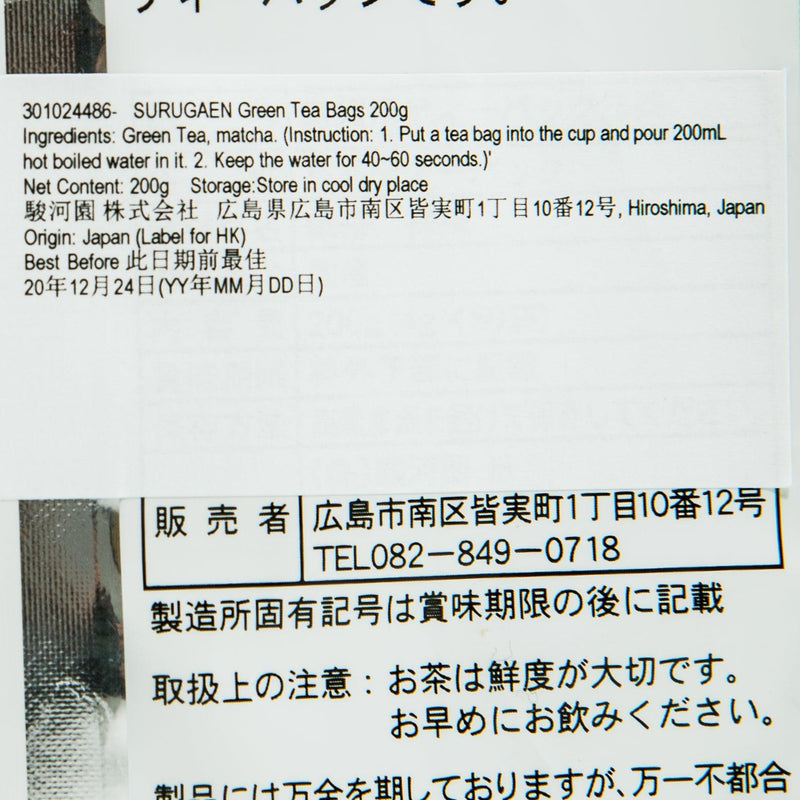 ティーバッグです。
301024486- SURUGAEN Green Tea Bags 200g
Ingredients: Green Tea, matcha. (Instruction: 1. Put a tea bag into the cup and pour 200mL
hot boiled water in it. 2. Keep the water for 40~60 seconds.)'
Net Content: 200g Storage:Store in cool dry place
駿河園 株式会社 広島県広島市南区皆実町1丁目10番12号, Hiroshima, Japan
Origin: Japan (Label for HK)
Best Before 此日期前最佳
20年12月24日(YY年MM月DD日)
販売者 広島市南区皆実町1丁目10番12号
TEL082-849-0718
製造所固有記号は賞味期限の後に記載
取扱上の注意：お茶は鮮度が大切です。
お早めにお飲みください。
製品には万全を期しておりますが、万一不都合